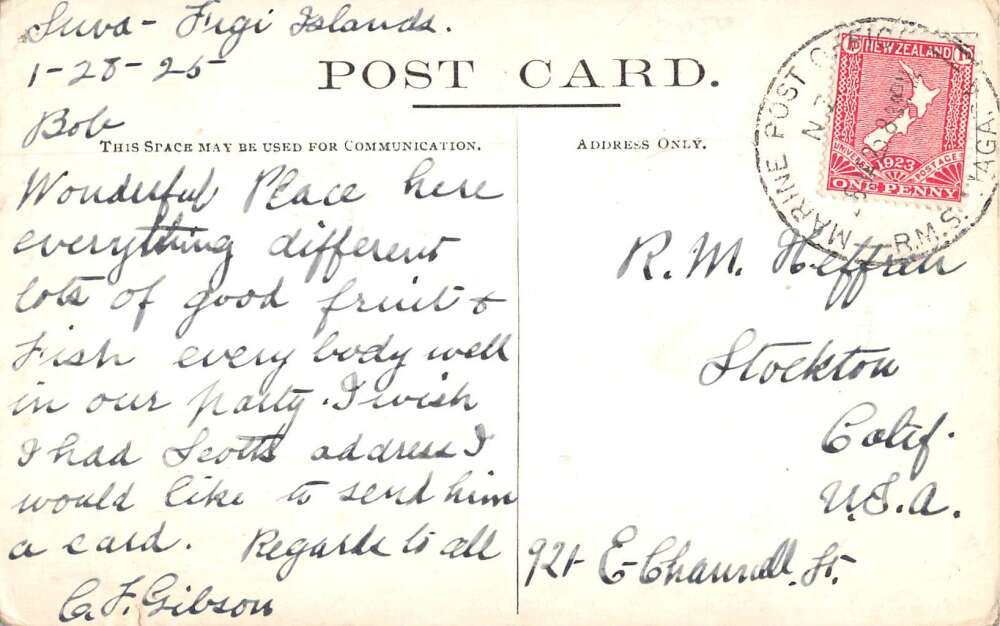 Suva - Figi Islands.
1-28-25
POST CARD.
Bob
THIS SPACE MAY BE USED FOR COMMUNICATION.
ADDRESS ONLY.
Wonderful Place here
everything different
lots of good fruit &
Fish every body well
in our party. I wish
I had Scotts address I
would like to send him
a card. Regards to all
C. F. Gibson
R. M. Heffren
Stockton
Calif.
U.S.A.
921 E- Channell St.
1D NEW ZEALAND 1D
UNIVERSAL 1923 POSTAGE
ONE PENNY
MARINE POST OFFICE
N.Z.
R.M.S.